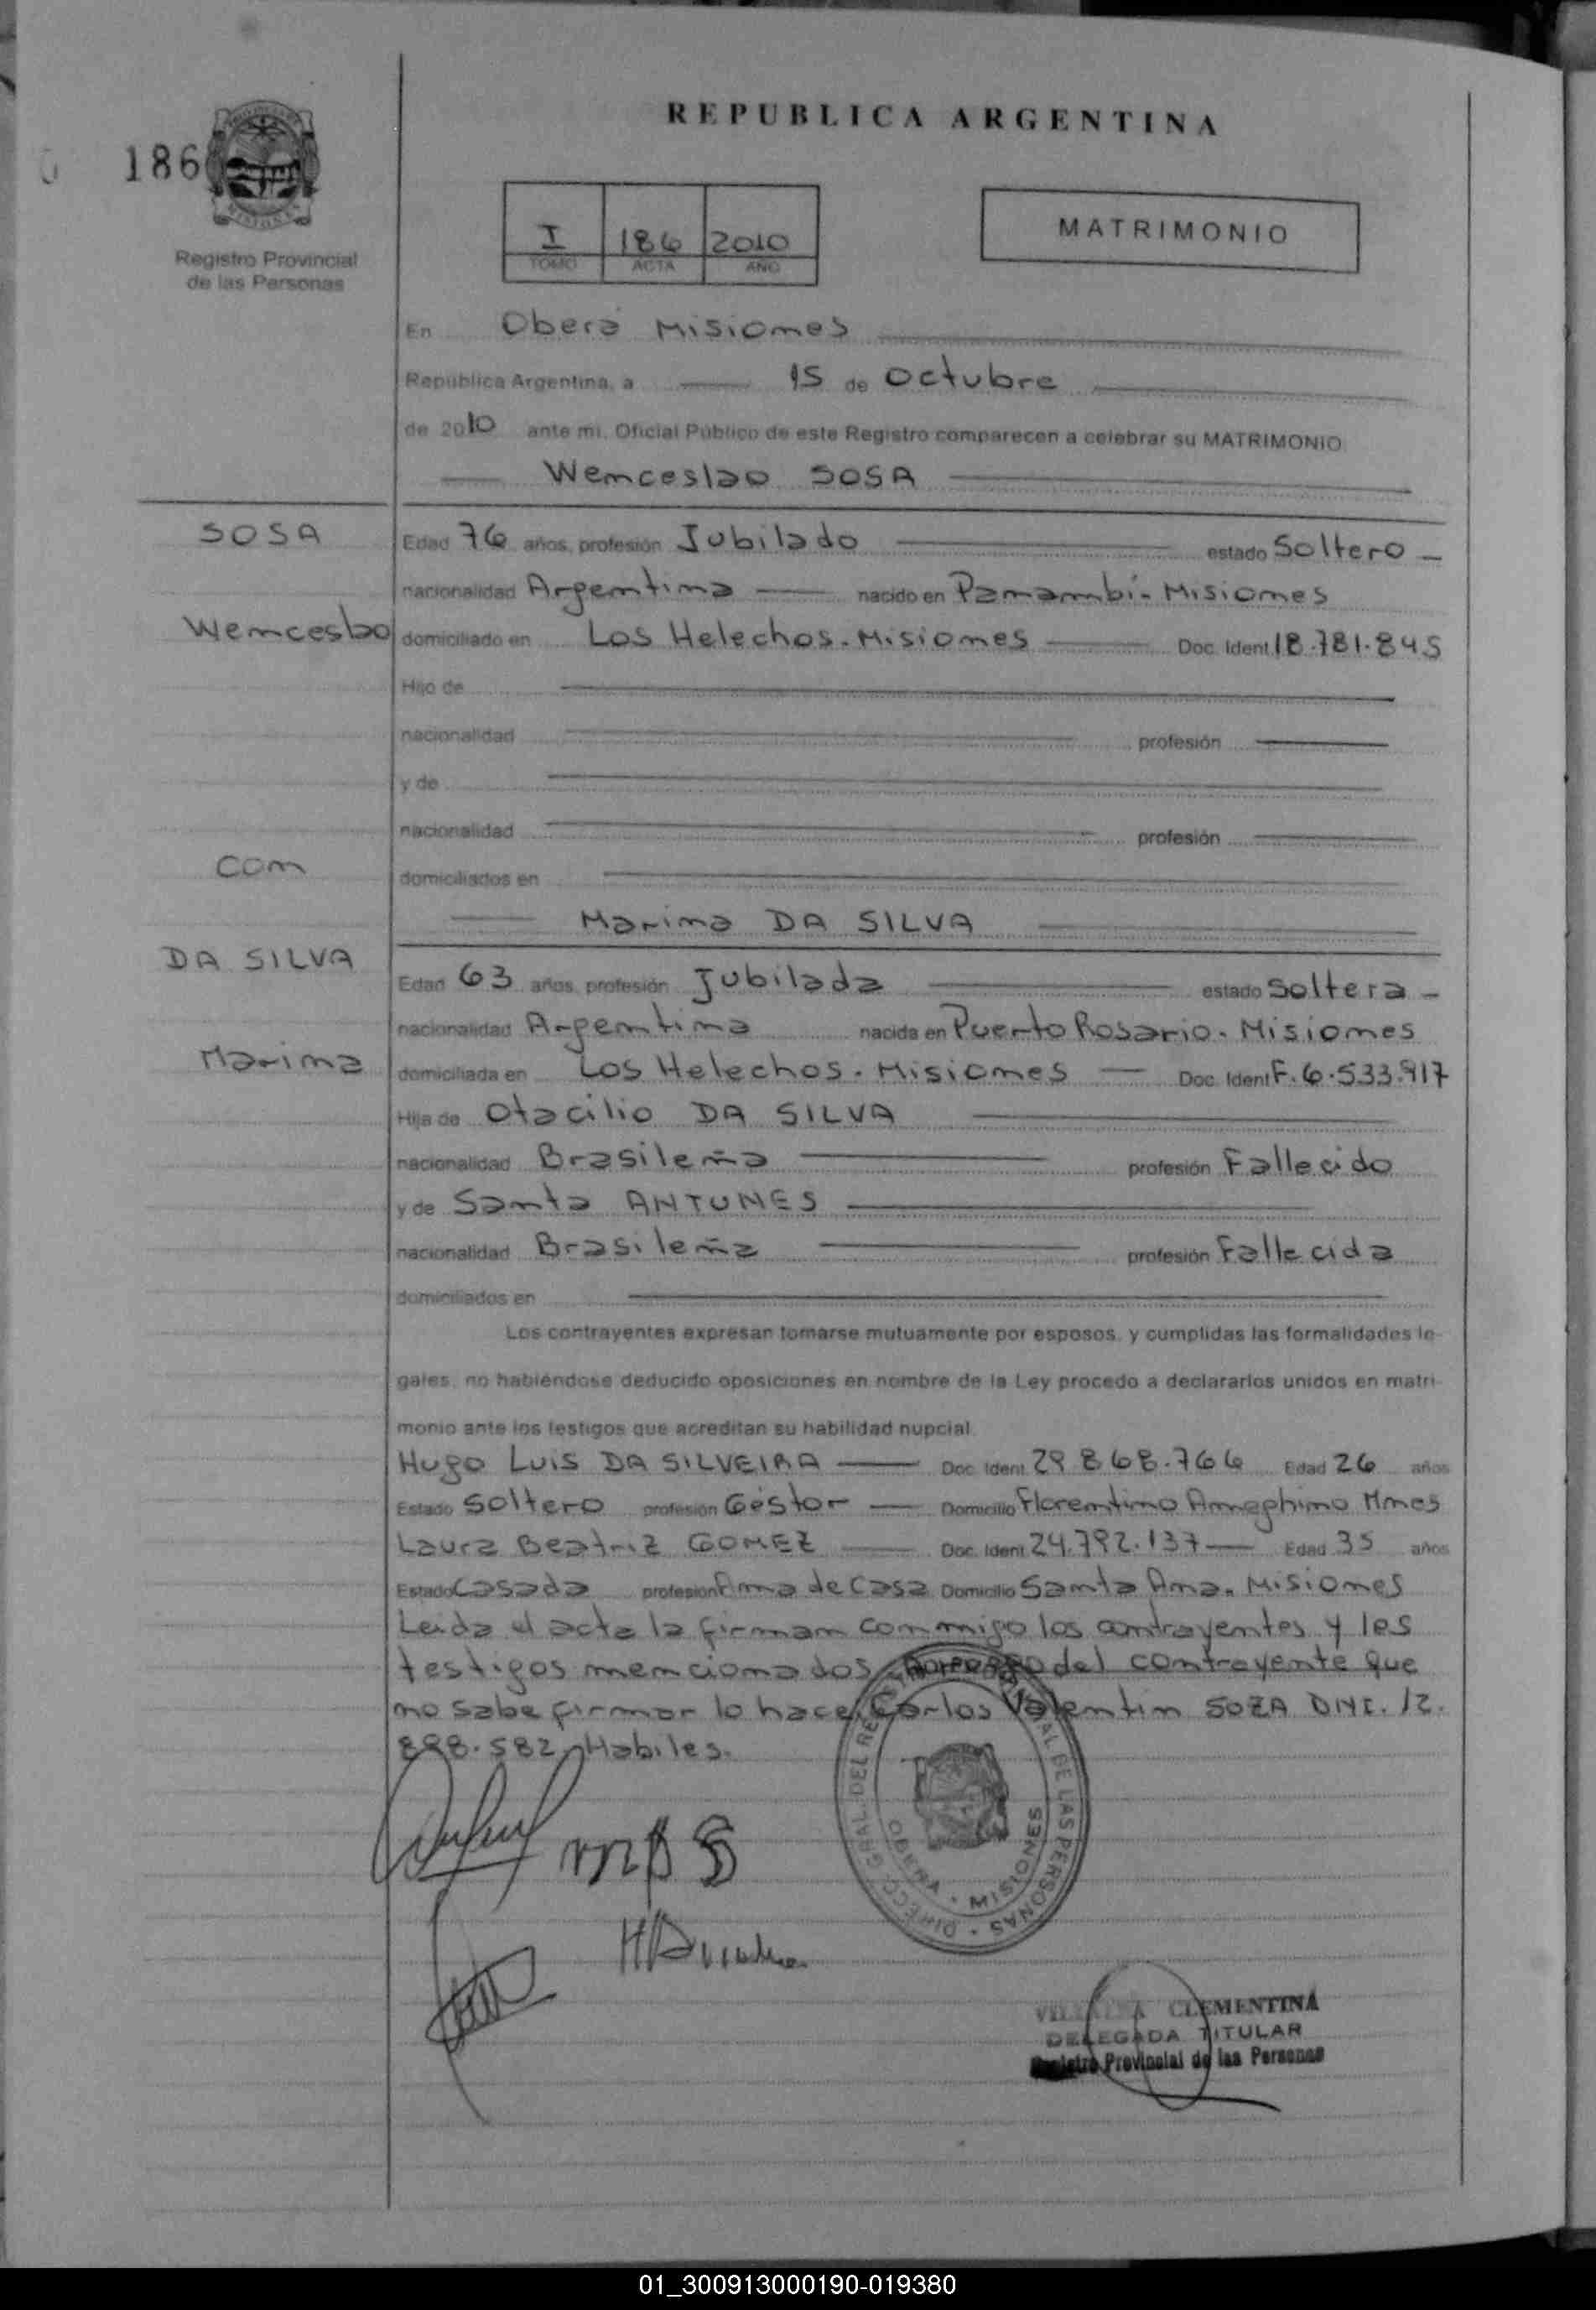 REPUBLICA ARGENTINA
186
PROVINCIA DE
MISIONES
Registro Provincial
de las Personas
I 186 2010
TOMO ACTA AÑO
MATRIMONIO
En Oberá Misiones
República Argentina, a 15 de Octubre
de 2010 ante mi, Oficial Público de este Registro comparecen a celebrar su MATRIMONIO
Wenceslao SOSA
SOSA
Edad 76 años, profesión Jubilado estado Soltero
nacionalidad Argentina nacido en Panambí - Misiones
Wenceslao
domiciliado en Los Helechos - Misiones Doc. Ident 18.781.845
Hijo de
nacionalidad profesión
y de
nacionalidad profesión
con
domiciliados en
Marina DA SILVA
DA SILVA
Edad 63 años, profesión Jubilada estado Soltera
nacionalidad Argentina nacida en Puerto Rosario - Misiones
Marina
domiciliada en Los Helechos - Misiones Doc. Ident F. 6.533.917
Hija de Otacilio DA SILVA
nacionalidad Brasileña profesión Fallecido
y de Santa ANTUNES
nacionalidad Brasileña profesión Fallecida
domiciliados en
Los contrayentes expresan tomarse mutuamente por esposos, y cumplidas las formalidades le-
gales, no habiéndose deducido oposiciones en nombre de la Ley procedo a declararlos unidos en matri-
monio ante los testigos que acreditan su habilidad nupcial
Hugo Luis DA SILVEIRA Doc. Ident. 29.868.766 Edad 26 años
Estado Soltero profesión Géstor Domicilio Florentino Ameghino Mnes
Laura Beatriz GOMEZ Doc. Ident. 24.792.137 Edad 35 años
Estado Casada profesion Ama de Casa Domicilio Santa Ana - Misiones
Leida el acta la firman conmigo los contrayentes y los
testigos mencionados. A del contrayente que
no sabe firmar lo hace, Carlos Valentin SOZA DNI. 12.
898.582, Habiles.
DIRECC. GRAL. DEL REGISTRO PROVINCIAL DE LAS PERSONAS
OBERA - MISIONES
CLEMENTINA
DELEGADA TITULAR
Registro Provincial de las Personas
01_300913000190-019380